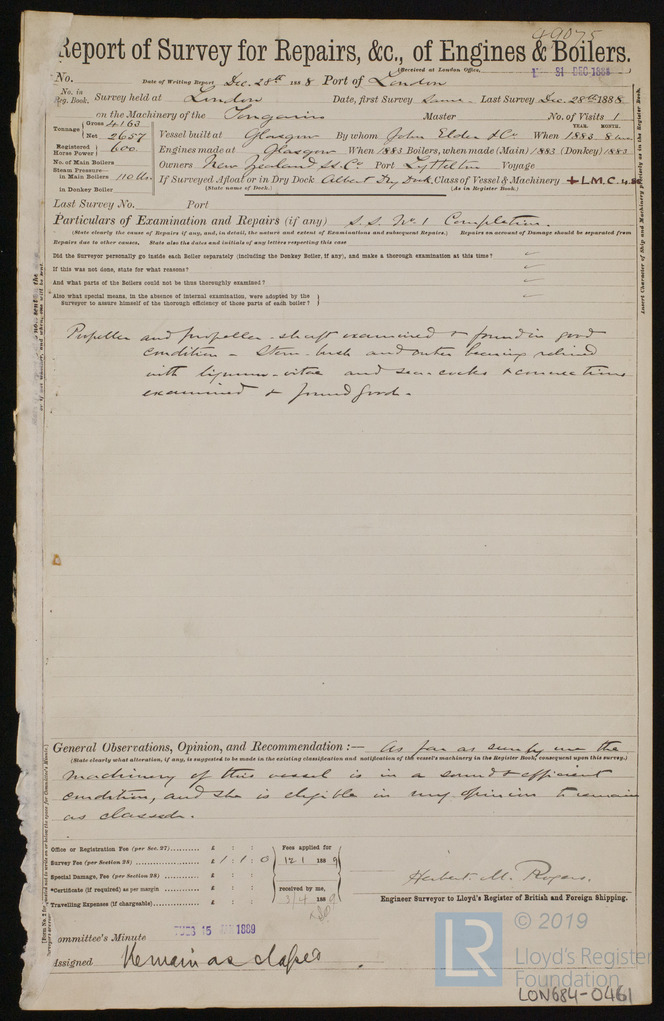 49075
Report of Survey for Repairs, &c., of Engines & Boilers.
(Received at London Office, 31 DEC 1888
No. Date of Writing Report Dec. 28th 1888 Port of London
No. in Reg. Book. Survey held at London Date, first Survey Same Last Survey Dec. 28th 1888
on the Machinery of the Tongariro Master No. of Visits 1
Tonnage Gross 4163 Net 2657 Vessel built at Glasgow By whom John Elder & Co. When YEAR. 1883 MONTH. 8
Registered Horse Power 600 Engines made at Glasgow When 1883 Boilers, when made (Main) 1883 (Donkey) 1883
No. of Main Boilers Owners New Zealand S. Co. Port Lyttelton Voyage
Steam Pressure— in Main Boilers 110 lbs. If Surveyed Afloat or in Dry Dock Albert Dry Dock Class of Vessel & Machinery + L.M.C. 4.
in Donkey Boiler (State name of Dock.) (As in Register Book.)
Last Survey No. Port
Particulars of Examination and Repairs (if any) S.S. No. 1 Completion.
(State clearly the cause of Repairs if any, and, in detail, the nature and extent of Examinations and subsequent Repairs.) Repairs on account of Damage should be separated from
Repairs due to other causes. State also the dates and initials of any letters respecting this case
Did the Surveyor personally go inside each Boiler separately (including the Donkey Boiler, if any), and make a thorough examination at this time?
If this was not done, state for what reasons?
And what parts of the Boilers could not be thus thoroughly examined?
Also what special means, in the absence of internal examination, were adopted by the
Surveyor to assure himself of the thorough efficiency of those parts of each boiler?
Propeller and propeller-shaft examined & found in good
condition - Stern-bush and outer bearing relined
with lignum-vitae and sea-cocks & connections
examined & found good.
Insert Character of Ship and Machinery precisely as in the Register Book.
General Observations, Opinion, and Recommendation :— As far as seen by me the
(State clearly what alteration, if any, is suggested to be made in the existing classification and notification of the vessel's machinery in the Register Book, consequent upon this survey.)
machinery of this vessel is in a sound & efficient
condition, and she is eligible in my opinion to remain
as classed.
Office or Registration Fee (per Sec. 27) £ : : Fees applied for
Survey Fee (per Section 28) £ 1 : 1 : 0 12 1 1889
Special Damage, Fee (per Section 28) £ : :
Certificate (if required) as per margin £ : : received by me,
Travelling Expenses (if chargeable) £ : : 3/4 1889
Herbert M. Rogers
Engineer Surveyor to Lloyd's Register of British and Foreign Shipping.
Committee's Minute TUES 15 1889
Assigned Remain as classed
LR © 2019
Lloyd's Register
Foundation
LON684-0461